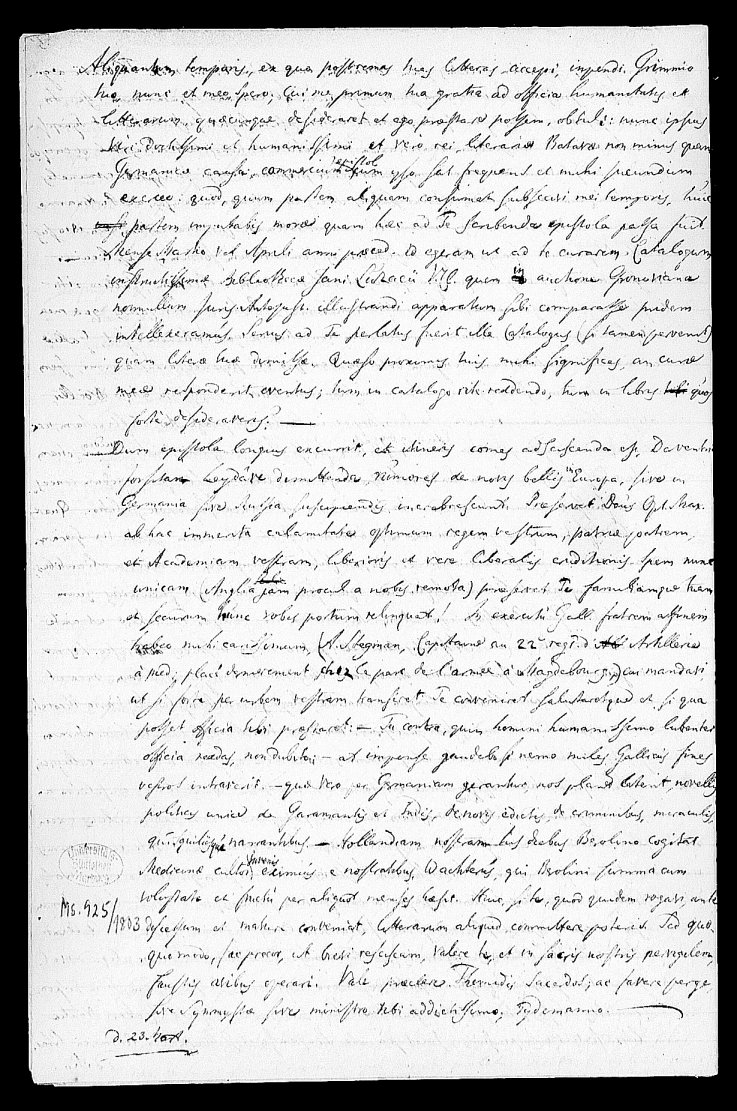 Aliquantum temporis, ex quo postremas tuas litteras accepi, impendi Grimmio
tuo, nunc et meo spero. Cui me primum tua gratia ad officia humanitatis et
litterarum, quaecunque desideraret et ego praestare possem, obtuli: nunc ipsius
viri doctissimi et humanissimi et vero rei literariae Batavae non minus quam
Germanicae causa, commercium epistol. cum ipso sat frequens et mihi jucundum
exerceo: quod, quum partem aliquam consumat subsecivi mei temporis, huic
partem imputabis morae quam haec ad Te scribenda epistola passa fuit.
— Mense Martio vel Aprili anni praeced. id egeram ut ad te curarem Catalogum
instructissimae Bibliothecae Jani Luzacii V. Cl. quem in auctione Gronoviana
nonnullum juris Antejust. illustrandi apparatum sibi comparasse pridem
intellexeramus. Serius ad Te perlatus fuerit ille Catalogus (si tamen pervenit)
quam literae tuae dimissae. Quaeso proximis tuis mihi significes, an curae
meae responderit eventus; tum in catalogo rite reddendo, tum in libris quos
forte desideraveris. —
— Dum epistola longius excurrit, et itineris comes adsciscenda est, Daventria
forsitan Leydáve dimittenda, rumores de novis bellis in Europa, sive in
Germania sive Russia suscipiendis increbrescunt. Praeservet Deus Opt. Max.
ab hac immerita calamitate optimum regem vestrum, patriae patrem,
et Academiam vestram, literarum et vere liberalis eruditionis spem nunc
unicam (Anglia jam procul a nobis remota) praeservet Te familiamque tuam
et securum hunc vobis portum relinquat! In exercitu Gall. fratrem affinem
habeo mihi carissimum, (A. Stegman, Capitaine au 22e regt. d'Artillerie
à pied, placé dernierement chez le parc de l'armée à Magdebourg,) cui mandavi
ut si forte per urbem vestram transiret Te conveniret salutaretque et si qua
posset officia tibi praestaret: — Tu contra, quin homini humanissimo lubenter
officia reddas, non dubito; — at impense gaudebo si nemo miles Gallicus fines
vestros intraverit. — quae vero per Germaniam gerantur, nos plane latent, novellis
politicis unice de Garamantis et Indis, de novis edictis, de criminibus, miraculis,
quisquiliisque narrantibus. — Hollandiam nostram his diebus Berolino cogitat
Medicinae cultor juvenis eximius e nostratibus, Wachterus, qui Berolini summa cum
voluptate et fructu per aliquot menses haesit. Huic, si te, quod quidem rogavi, ante
discessum ei mature conveniat, litterarum aliquid committere poteris. Sed quo-
quo modo, fac precor, ut brevi resciscam, valere te, et in sacris nostris pervigilem,
faustis avibus operari. Vale praeclare Themidis Sacerdos, ac favere perge,
sive Symmystae sive ministro tibi addictissimo, Tydemanno. —
d. 23. Mart.
Ms. 925/1803